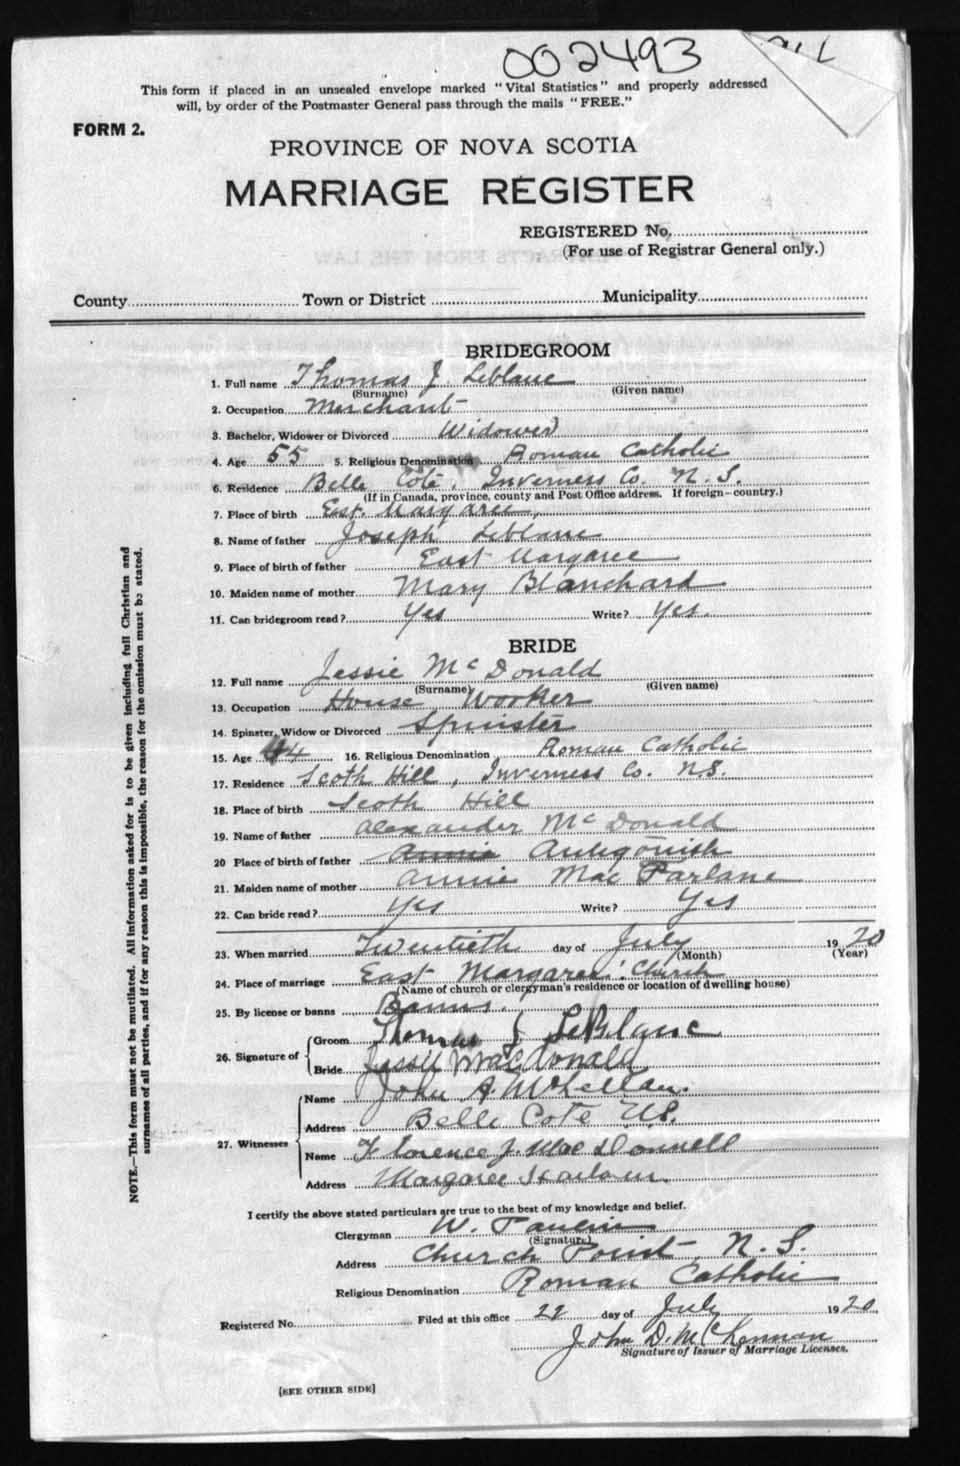 002493
This form if placed in an unsealed envelope marked "Vital Statistics" and properly addressed
will, by order of the Postmaster General pass through the mails "FREE."
FORM 2.
PROVINCE OF NOVA SCOTIA
MARRIAGE REGISTER
REGISTERED No.
(For use of Registrar General only.)
County Town or District Municipality
BRIDEGROOM
1. Full name Thomas J. Leblanc
(Surname) (Given name)
2. Occupation Merchant
3. Bachelor, Widower or Divorced Widower
4. Age 55 5. Religious Denomination Roman Catholic
6. Residence Belle Cote, Inverness Co. N. S.
(If in Canada, province, county and Post Office address. If foreign—country.)
7. Place of birth East Margaree,
8. Name of father Joseph Leblanc
9. Place of birth of father East Margaree
10. Maiden name of mother Mary Blanchard
11. Can bridegroom read? Yes Write? Yes.
BRIDE
12. Full name Jessie McDonald
(Surname) (Given name)
13. Occupation House Worker
14. Spinster, Widow or Divorced Spinster
15. Age 44 16. Religious Denomination Roman Catholic
17. Residence Scoth Hill, Inverness Co. N.S.
18. Place of birth Scoth Hill
19. Name of father Alexander McDonald
20 Place of birth of father Annie Antigonish
21. Maiden name of mother Annie Mac Farlane
22. Can bride read? Yes Write? Yes
23. When married Twentieth day of July 1920
(Month) (Year)
24. Place of marriage East Margaree Church
(Name of church or clergyman's residence or location of dwelling house)
25. By license or banns Banns.
26. Signature of Groom Thomas J LeBlanc
Bride Jessie MacDonald
27. Witnesses Name John A McLellan.
Address Belle Cote N.S.
Name Florence J. Mac Donnell
Address Margaree Harbour.
I certify the above stated particulars are true to the best of my knowledge and belief.
Clergyman W.
(Signature)
Address Church Point, N. S.
Religious Denomination Roman Catholic
Registered No. Filed at this office 22 day of July 1920
John D. McLennan
Signature of Issuer of Marriage Licenses.
[SEE OTHER SIDE]
NOTE.—This form must not be mutilated. All information asked for is to be given including full Christian and
surnames of all parties, and if for any reason this is impossible, the reason for the omission must be stated.